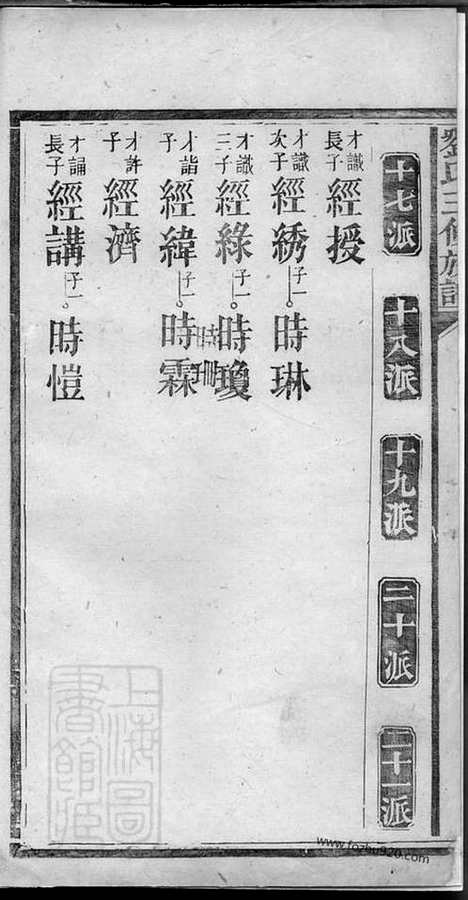 劉氏三修族譜
十七派
十八派
十九派
二十派
二十一派
才識長子 經授
才識次子 經綉 子一 時琳
才識三子 經綠 子一 時瓊
時珊
才詣子 經緯 子一 時霖
才許子 經濟
才誦長子 經講 子一 時愷
上海圖書館藏
www.fozhu920.com